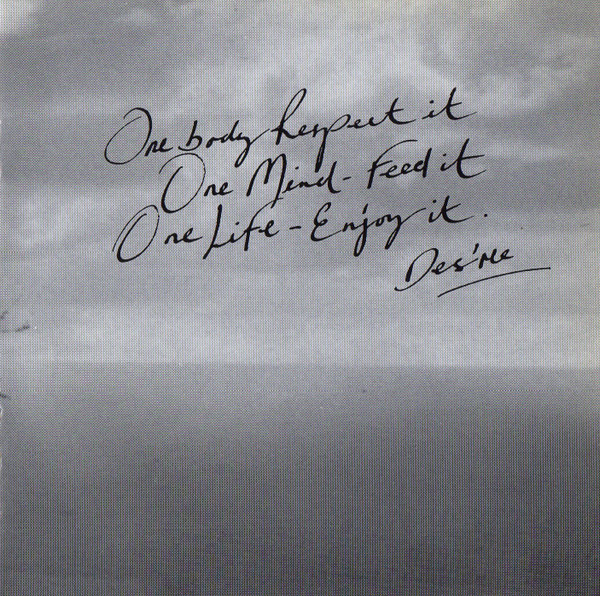 One body Respect it
One Mind - Feed it
One Life - Enjoy it.
Des'ree